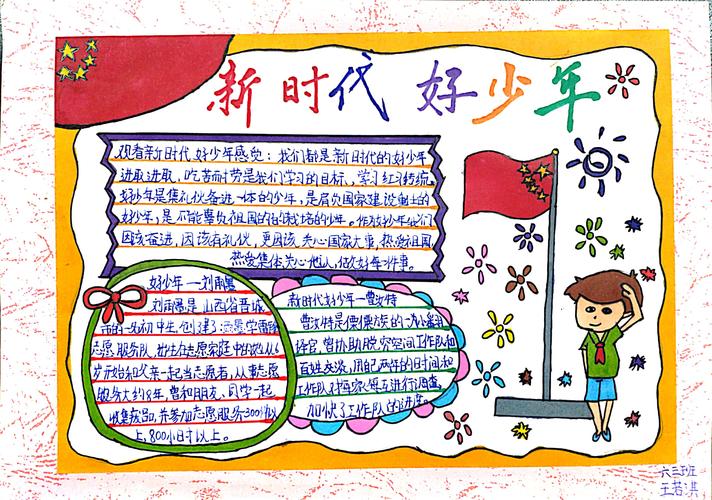 新时代 好少年
观看新时代好少年感觉：我们都是新时代的好少年
进取进取，吃苦而劳是我们学习的目标，学习红习传统。
好少年是集礼仪备进一体的少年，是肩负国家建设制土的
好少年，是不能辜负祖国的的栽培的少年。作为好少年我们
因该奋进，因该有礼仪，更因该关心国家大事，热爱祖国，
热爱集体，关心他人，做好每一件事。
好少年——刘雨墨
刘雨墨是山西省晋城
市的一名初中生，创建了雨墨学雷锋
志愿服务队，出生在志愿家庭中的她从6
岁开始和父亲一起当志愿者，从事志愿
服务大约8年，曾和朋友、同学一起
收集药品，并参加志愿服务300场以
上，800小时以上。
新时代好少年—曹汝特
曹汝特是傈僳族的一次小翻
译官，曾协助脱空空间工作队和
百姓交谈，用自己两年的日时间和
工作队对百家每五进行调查，
加快了工作队的进度。
六三班
王若淇